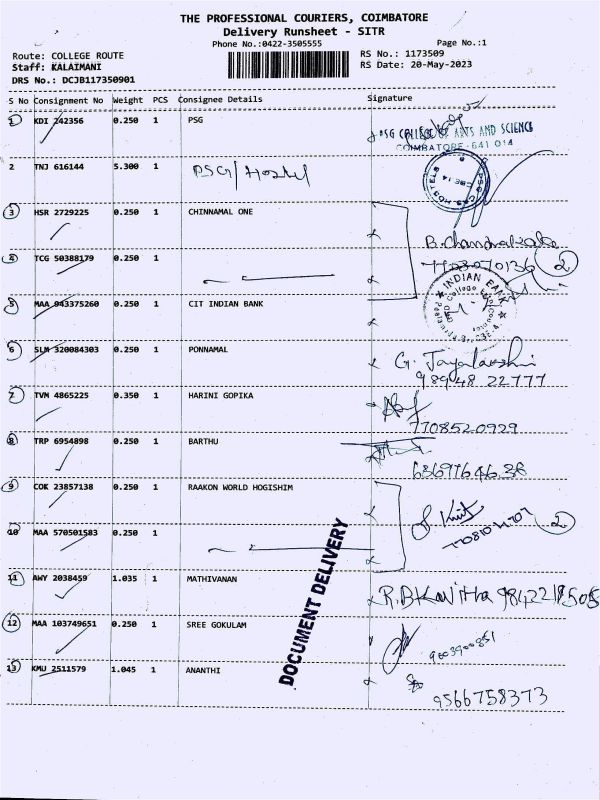 THE PROFESSIONAL COURIERS, COIMBATORE
Delivery Runsheet - SITR
Phone No.:0422-3505555 Page No.:1
Route: COLLEGE ROUTE RS No.: 1173509
Staff: KALAIMANI RS Date: 20-May-2023
DRS No.: DCJB117350901
S No Consignment No Weight PCS Consignee Details Signature
1 KDI 242356 0.250 1 PSG
PSG COLLEGE OF ARTS AND SCIENCE
COIMBATORE-641 014
2 TNJ 616144 5.300 1 PSG/Hostel
3 HSR 2729225 0.250 1 CHINNAMAL ONE
B.Chandrakala
4 TCG 50388179 0.250 1 2
INDIAN BANK
5 MAA 943375260 0.250 1 CIT INDIAN BANK
6 SLM 320084303 0.250 1 PONNAMAL G. Jayalakshmi
98948 22777
7 TVM 4865225 0.350 1 HARINI GOPIKA
7708520929
8 TRP 6954898 0.250 1 BARTHU
9 COK 23857138 0.250 1 RAAKON WORLD HOGISHIM
10 MAA 570501583 0.250 1 2
DOCUMENT DELIVERY
11 AWY 2038459 1.035 1 MATHIVANAN R.B Kavitha
12 MAA 103749651 0.250 1 SREE GOKULAM
13 KMU 2511579 1.045 1 ANANTHI
9566758373